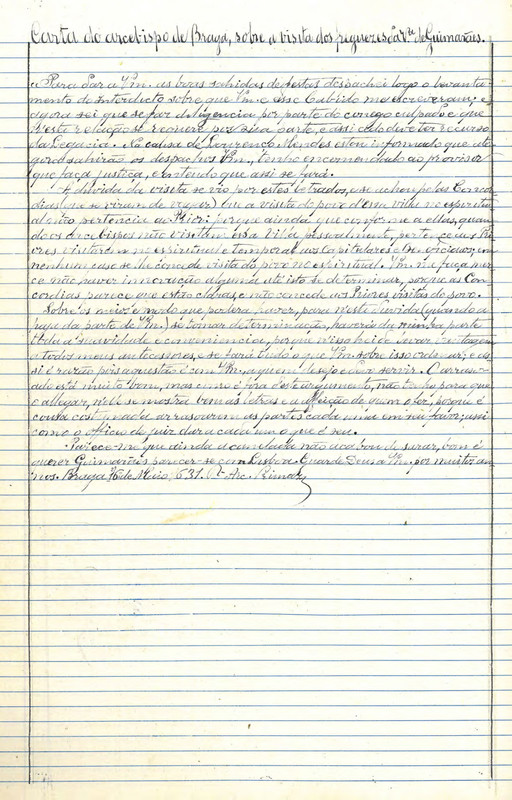 Carta do arcebispo de Braga, sobre a visita dos freguezes da vª. de Guimarães.
Para dar a Vm. as boas sahidas de festas despachei logo o levanta-
mento do Interdicto sobre que Vm. e esse Cabido me escreveram; e
agora sei que se faz diligencia por parte do conego culpado e que
n'esta relação se requere por sua parte, e assi cuido divertir recurso
da Legacia. Na causa de Lourenço Mendes estou informado que até-
gora sahirão os despachos Vm., tenho encomendado ao provisor
que faça justiça, e entendo que assi se fará.
A duvida da visita se vio por estes letrados, e se achou pelas Concor-
dias (que se viram de vagar) que a visita do povo d'essa villa no espiritu-
al não pertencia ao Prior: porque ainda que conforme a ellas, quan-
do os arcebispos não visitem essa Villa pessoalmente, pertence aos Pri-
ores visitarem no espiritual e temporal aos Capitulares e Beneficiados; em
nenhum caso se lhe concede visita do povo no espiritual. Vm. me faça mer-
ce não haver innovação alguma até isto se determinar, porque as Con-
cordias parece que estão claras, e não concede aos Priores visitas do povo.
Sobre os meios e modo que poderá haver, para n'esta duvida (quando a
haja da parte de Vm.) se tomar determinação, haverá de minha parte
toda a suavidade e conveniencia, porque n'isso hei de levar ventagem
a todos meus antecessores, e se fará tudo o que Vm. sobre isso ordenar; e as-
si é razão pois a questão é com Vm. a quem desejo de servir. O arrasoa-
do está muito bom, mas como é fora d'este argumento, não tenho para que
o allegar, n'elle se mostra bem as letras e a affeição de quem o fez, porque é
cousa costumada arrasoarem as partes cada uma em seu favor; assi
como o officio do juiz dar a cada um o que é seu.
Parece-me que ainda a candeada não acabou de sarar, bom é
querer Guimarães parecer-se com Lisboa. Guarde Deus a Vm. por muitos an-
nos. Braga 16 de Maio, 631. O Arc. Primaz